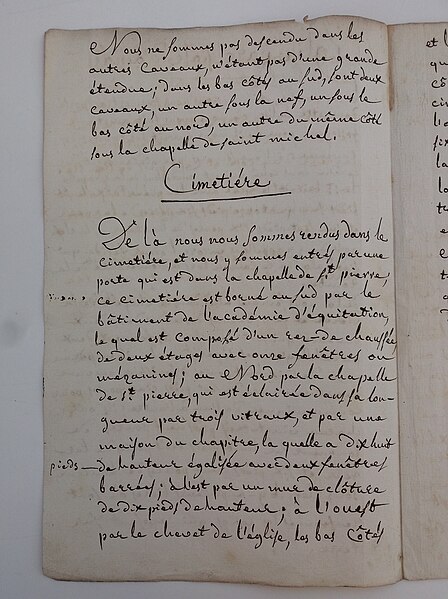 Nous ne sommes pas descendu dans les
autres caveaux, n'étant pas d'une grande
étendue; dans les bas côtés au sud, sont deux
caveaux, un autre sous la nef, un sous le
bas côté au nord, un autre du même côté
sous la chapelle de saint michel.
Cimetiére
De là nous nous sommes rendus dans le
cimetiére, et nous y sommes entrés par une
porte qui est dans la chapelle de st pierre,
ce cimetiére est borné au sud par le
bâtiment de l'académie d'équitation,
le quel est composé d'un rez-de chaussée
de deux étages avec onze fenêtres ou
mézanines; au Nord par la chapelle
de st pierre, qui est éclairée dans sa lon-
gueur par trois vitraux, et par une
maison du chapitre, la quelle a dix huit
pieds de hauteur égalisée avec deux fenêtres
barrées; à l'est par un mur de clôture
de dix pieds de hauteur; à l'ouest
par le chevet de l'église, les bas côtés